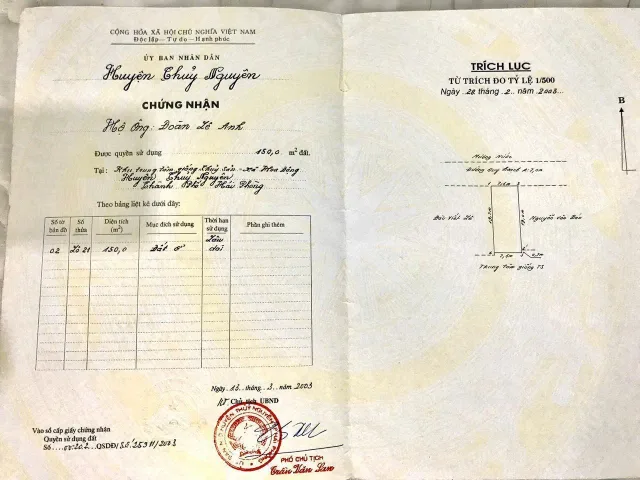 CỘNG HÒA XÃ HỘI CHỦ NGHĨA VIỆT NAM
Độc lập - Tự do - Hạnh phúc
ỦY BAN NHÂN DÂN
Huyện Thuỷ Nguyên
CHỨNG NHẬN
Hộ Ông: Đoàn Lê Anh
Được quyền sử dụng 150,0 m² đất.
Tại: Khu trung tâm giống Thuỷ Sản - Xã Hoa Động
Huyện Thuỷ Nguyên
Thành Phố Hải Phòng
Theo bảng liệt kê dưới đây:
Số tờ bản đồ
Số thửa
Diện tích (m²)
Mục đích sử dụng
Thời hạn sử dụng
Phần ghi thêm
02 Lô 21 150,0 Đất ở Lâu dài
Ngày 15 tháng 3 năm 2003
Chủ tịch UBND
Vào sổ cấp giấy chứng nhận
Quyền sử dụng đất
Số 00202 QSDĐ/
PHÓ CHỦ TỊCH
Trần Văn
TRÍCH LỤC
TỪ TRÍCH ĐO TỶ LỆ 1/500
Ngày 28 tháng 2 năm 2003
B
Mương Nước
Đường Quy hoạch
Nguyễn Văn
Trung tâm giống TS